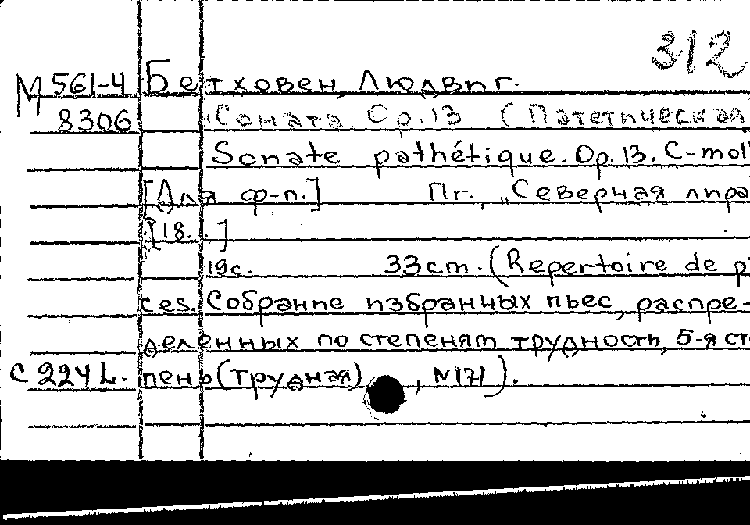 312
М 561-4 Бетховен, Людвиг.
8306 Соната Op. 13 (Патетическая
Sonate pathétique. Op. 13. C-mol
[Для ф-п.] Пг., "Северная лира
[18. .]
19с. 33cm. (Repertoire de pi
ces. Собрание избранных пьес, распре-
деленных по степеням трудности, 5-я сте
C 224 L. пень (трудная), N171).